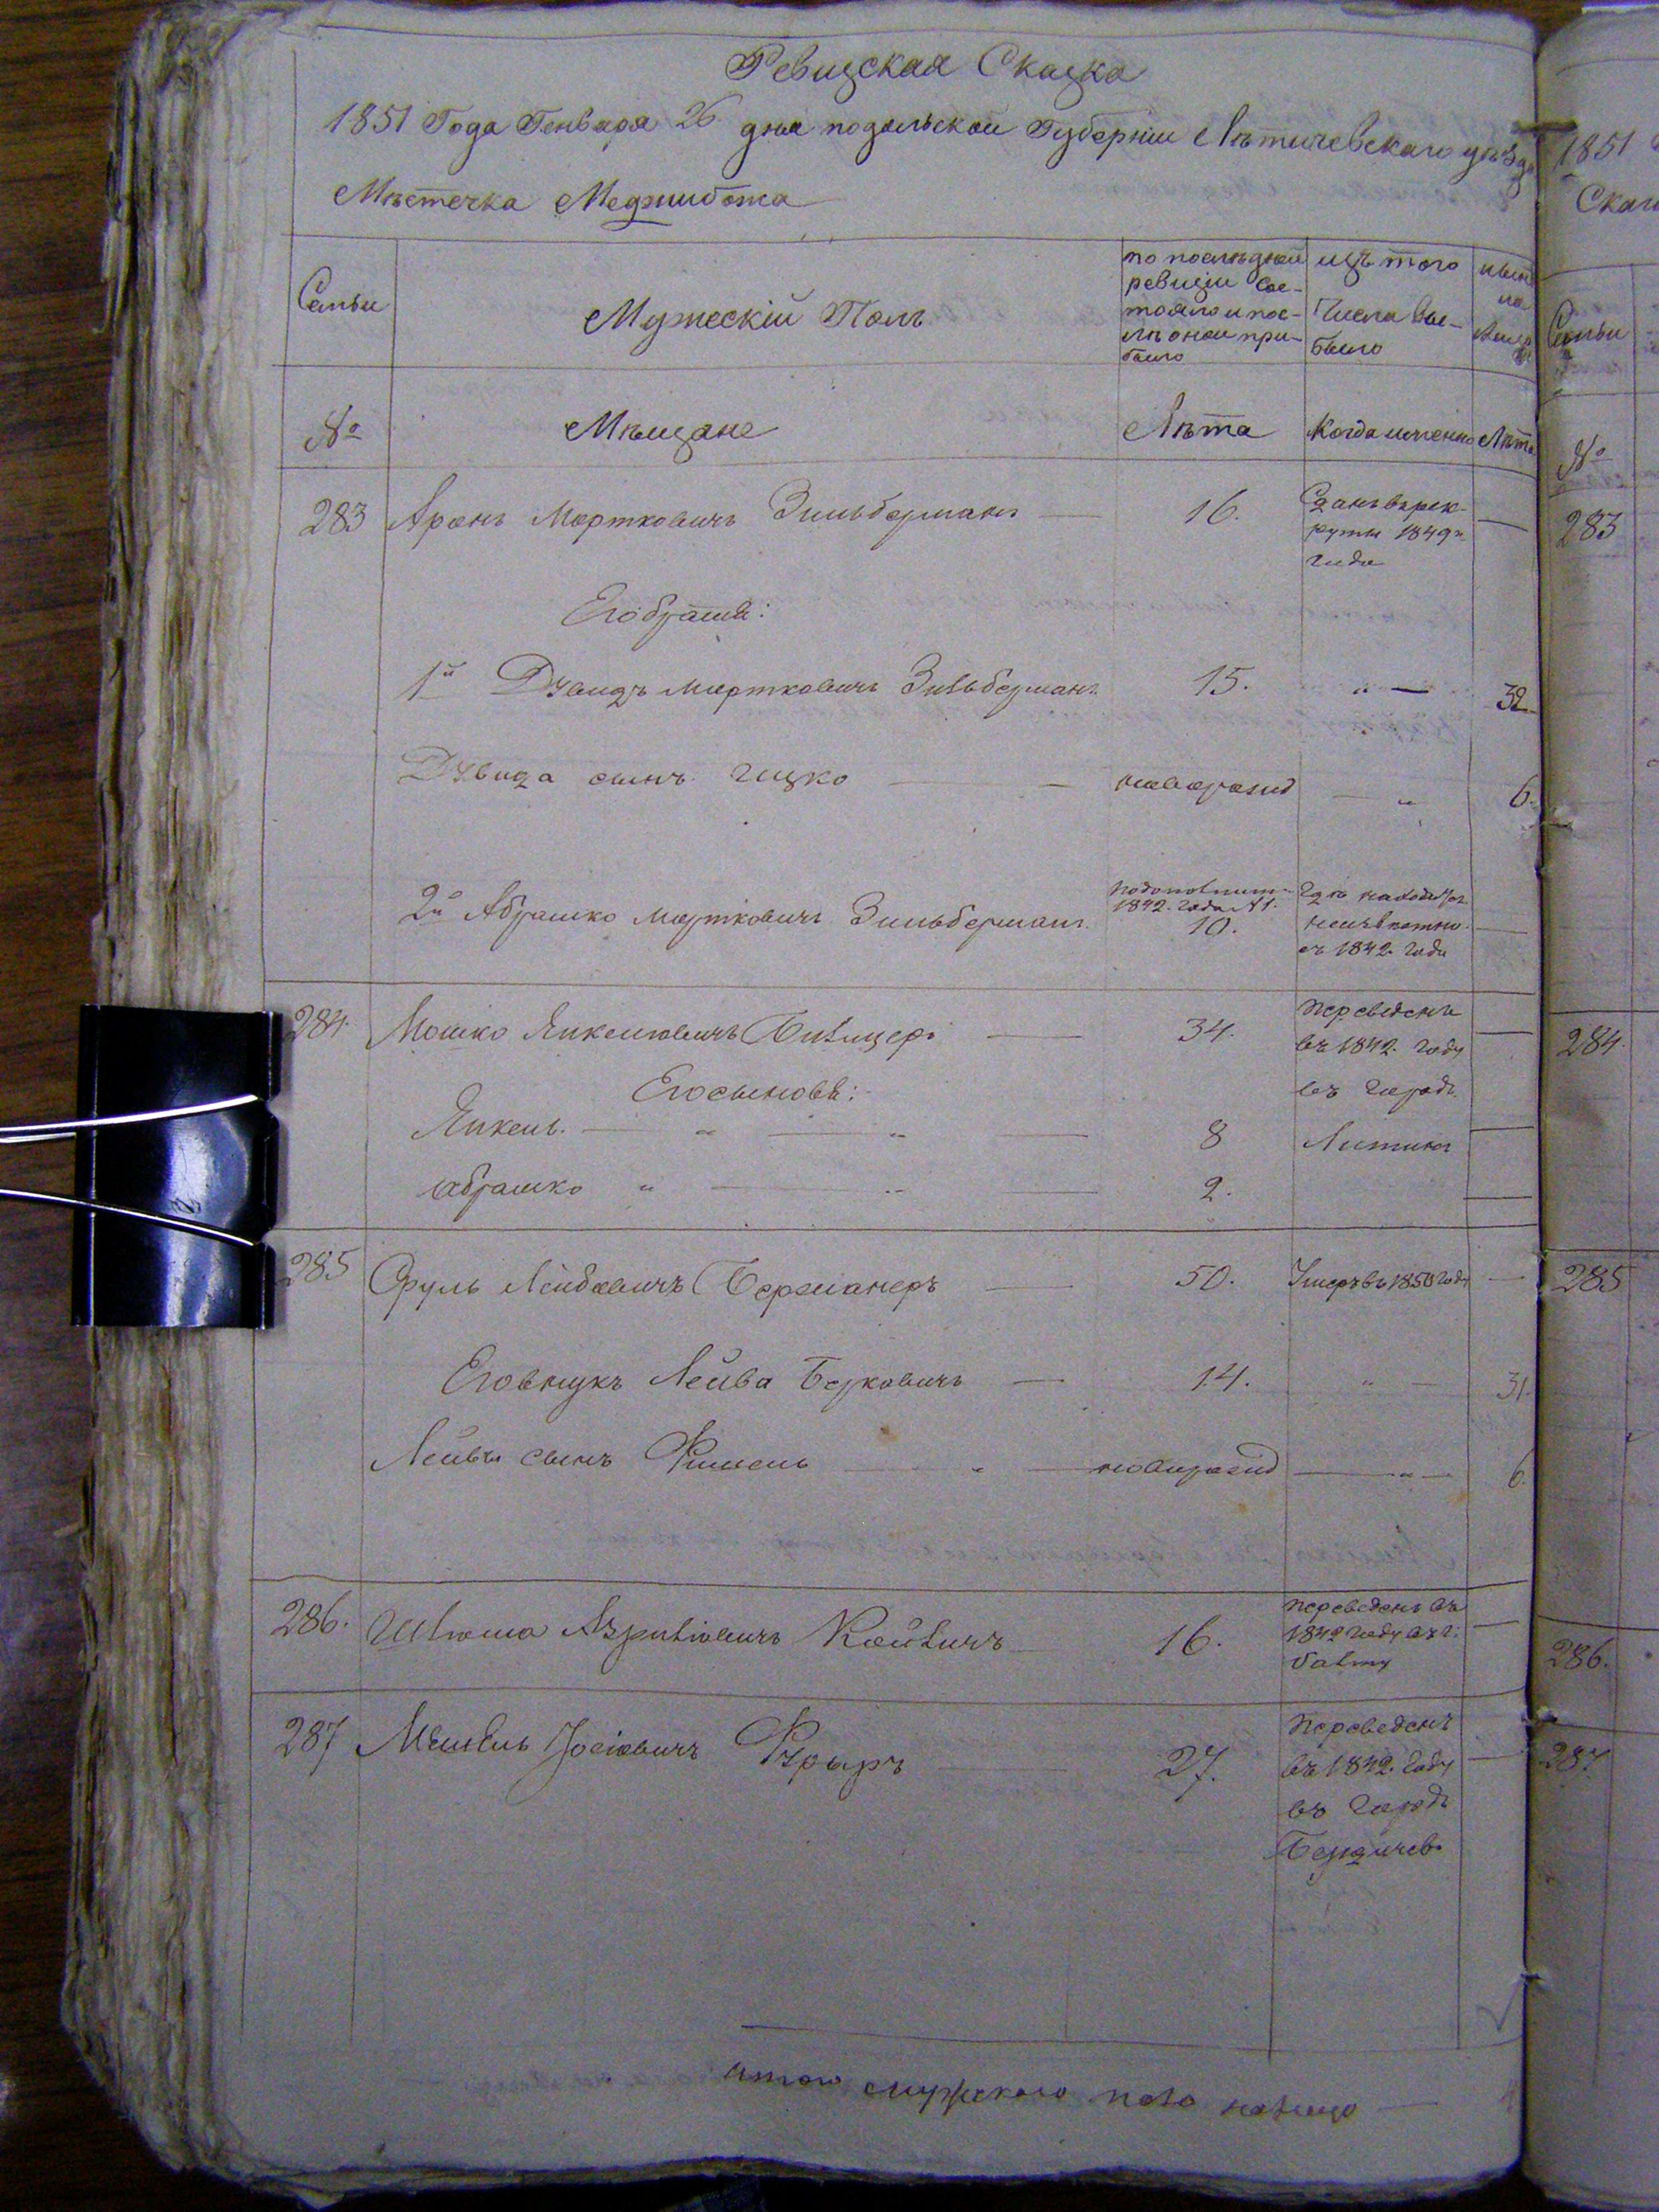 Ревизская Сказка
1851 Года Генваря 26 дня подольской Губерніи Лѣтичевскаго уѣзда
Мѣстечка Меджибожа
Семьи
Мужескій Полъ
по послѣдней ревизіи сос-
тояло и пос-
лѣ оной при-
было
изъ того
Числа вы-
было
нынѣ
на
лицо
№
Мѣщане
Лѣта
Когда именно
Лѣта
283 Аронъ Мортковичъ Зильберманъ — 16.
Сданъ въ рек-
руты 1849го
года
—
Его братья:
1й Дувидъ Мортковичъ Зильберманъ 15. „ — 32
Дувида сынъ Ицко — — новорожд — „ 6.
2й Абрашко Мортковичъ Зильберманъ
по дополнит
1842. года №1.
10.
Гдѣ находится
неизвѣстно
съ 1842 года
—
284. Мошко Янкелиовичъ — 34.
переведенъ
въ 1842. году
въ городъ
Литинъ
—
Его сыновья:
Янкель — „ — „ — 8 —
Абрашко „ — „ — 2. —
285 Сруль Лейбовичъ — 50. Умеръ въ 1850 годѣ —
Его внукъ Лейба Берковичъ — 14. „ — 31.
Лейбы сынъ Фишель — „ — новорожд — „ — 6.
286. — 16.
переведенъ въ
1842 году въ г:
Балту
—
287 Іосіовичъ — 27.
Переведенъ
въ 1842. году
въ городъ
Бердичевъ
—
Итого мужескаго пола налицо —
1851
Сказ
Семьи
№
283
284.
285
286.
287